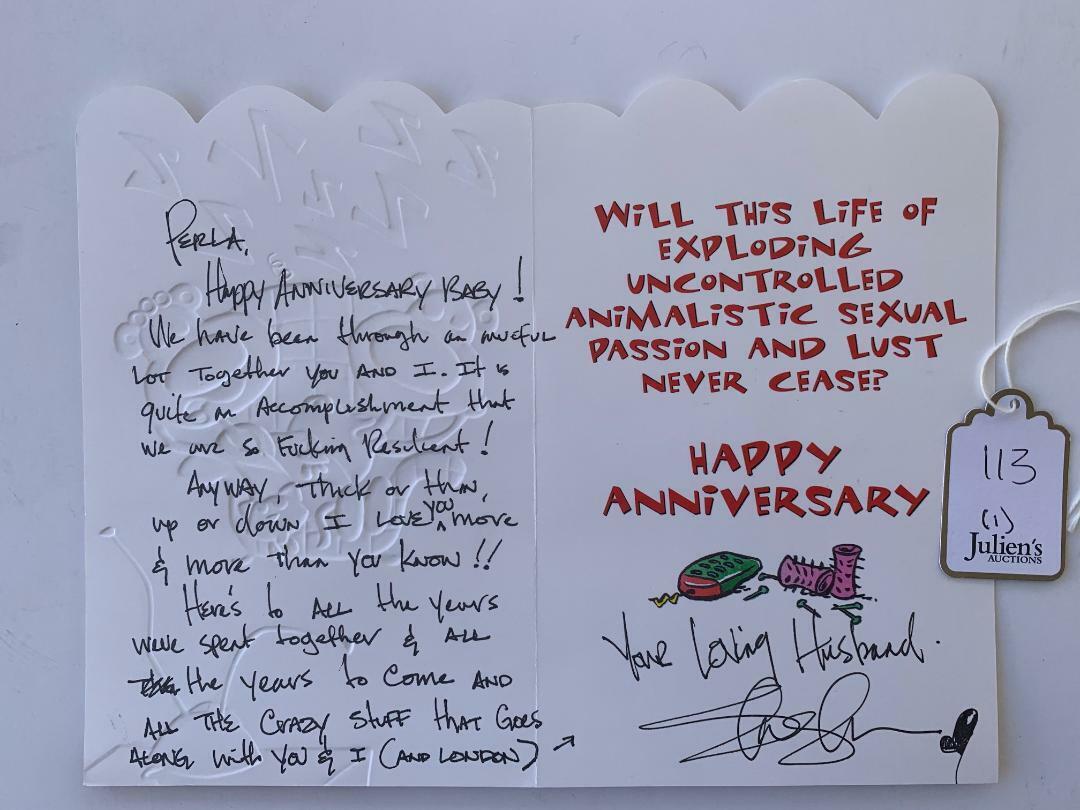 Perla,
Happy Anniversary Baby!
We have been through an awful
lot together you and I. It is
quite an accomplishment that
we are so fucking resilient!
Anyway, thick or thin,
up or down I love you more
& more than you know!!
Here's to all the years
we've spent together & all
the years to come and
all the crazy stuff that goes
along with you & I (and London) →
WILL THIS LIFE OF
EXPLODING
UNCONTROLLED
ANIMALISTIC SEXUAL
PASSION AND LUST
NEVER CEASE?
HAPPY
ANNIVERSARY
Your Loving Husband.
113
(1)
Julien's
AUCTIONS